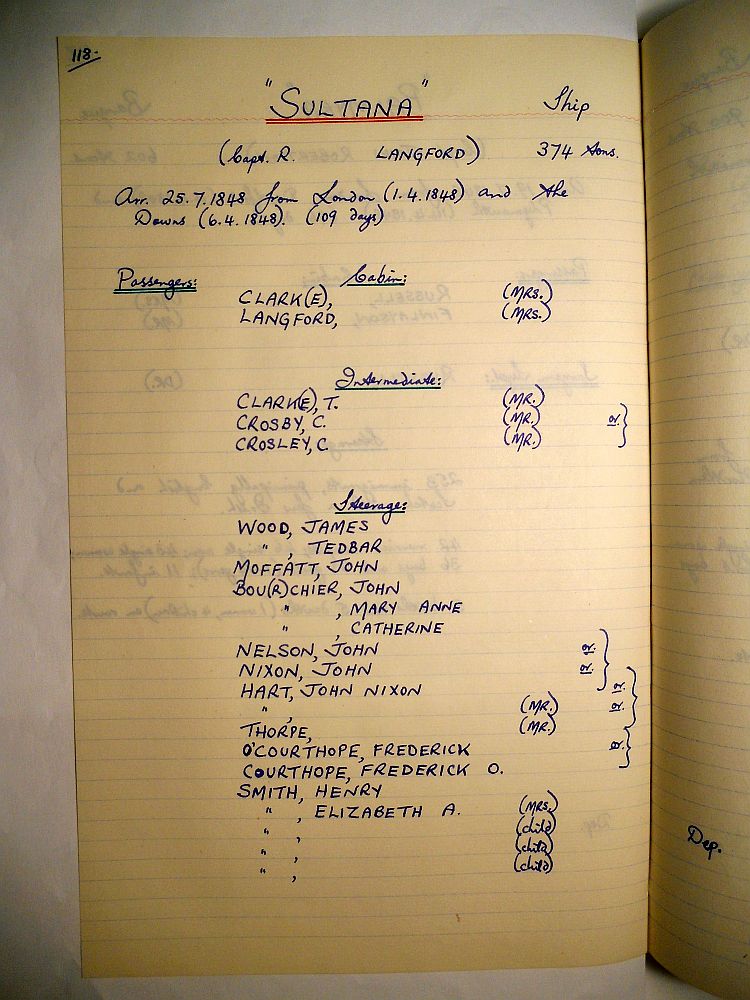 118-
"SULTANA" Ship
(Capt. R. LANGFORD) 374 tons.
Arr. 25.7.1848 from London (1.4.1848) and the
Downs (6.4.1848). (109 days)
Passengers: Cabin:
CLARK(E), (MRS.)
LANGFORD, (MRS.)
Intermediate:
CLARK(E), T. (MR.)
CROSBY, C. (MR.) or.
CROSLEY, C (MR.)
Steerage:
WOOD, JAMES
" , TEDBAR
MOFFATT, JOHN
BOU(R)CHIER, JOHN
" , MARY ANNE
" , CATHERINE
NELSON, JOHN or.
NIXON, JOHN or.
HART, JOHN NIXON or.
" , (MR.) or.
THORPE, (MR.)
O'COURTHOPE, FREDERICK or.
COURTHOPE, FREDERICK O.
SMITH, HENRY
" , ELIZABETH A. (MRS.)
" , (child)
" , (child)
" , (child)
Dep.